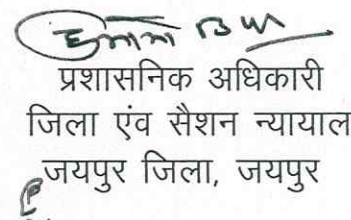 प्रशासनिक अधिकारी
जिला एंव सैशन न्यायाल
जयपुर जिला, जयपुर